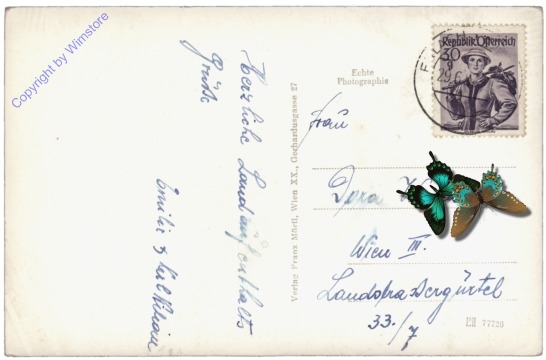 Copyright by Wimstore
Herzliche Landaufenthalts
Grüße
Emilie &
Echte
Photographie
Verlag Franz Mörtl, Wien XX., Gerhardusgasse 27
Republik Österreich
30
29.6
Frau
Dora
Wien III.
Landstrassergürtel
33./7
77720